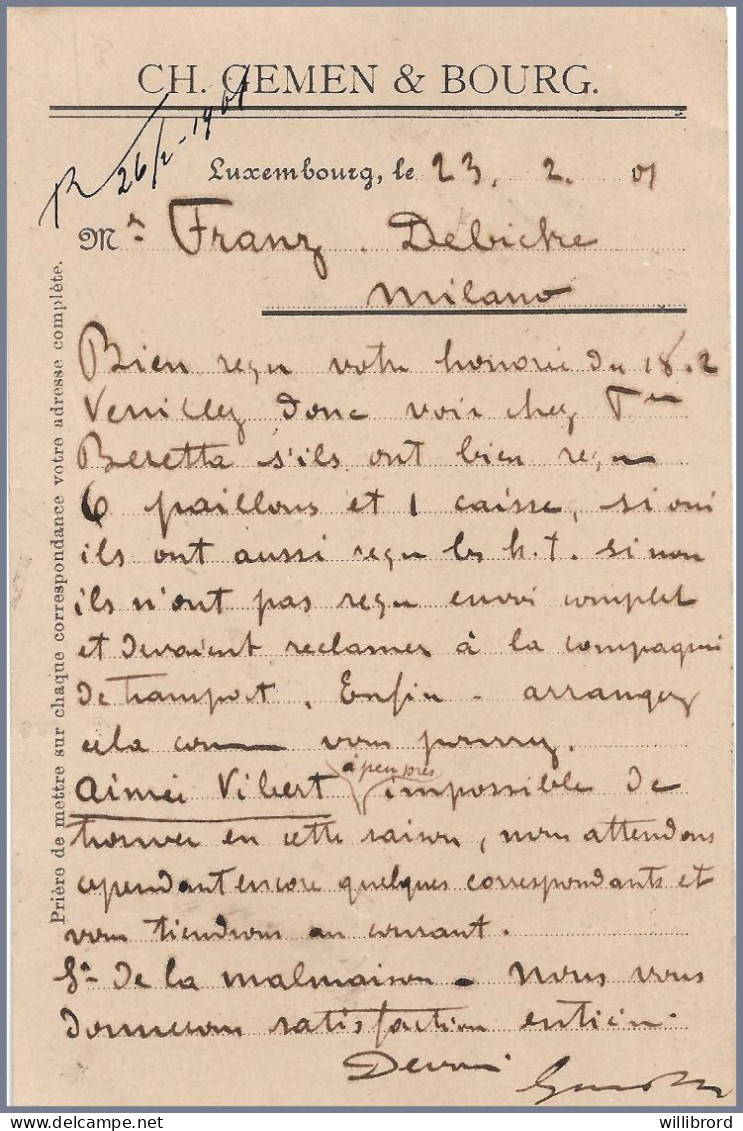 CH. GEMEN & BOURG.
R 26/2-1901
Luxembourg, le 23. 2. 01
Mr. Franz Debickre
Milano
Bien reçu votre honorée du 18.2
Veuillez donc voir chez
Beretta s'ils ont bien reçu
6 paillons et 1 caisse, si oui
ils ont aussi reçu les h.t. si non
ils n'ont pas reçu envoi complet
et devraient reclamer à la compagnie
de transport. Enfin - arrangez
cela comme vous pouvez.
Aimée Vibert à peu près impossible de
trouver en cette saison, nous attendons
cependant encore quelques correspondants et
vous tiendrons au courant.
Sr. de la malmaison - Nous vous
donnerons satisfaction entière.
Prière de mettre sur chaque correspondance votre adresse complète.
willibrord